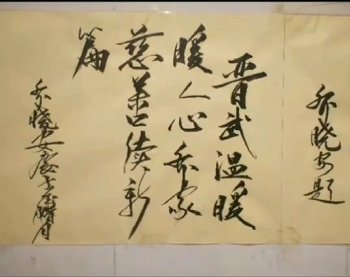 乔晓安题
晋武温暖
暖人心乔家
慈善续新
篇
乔晓安